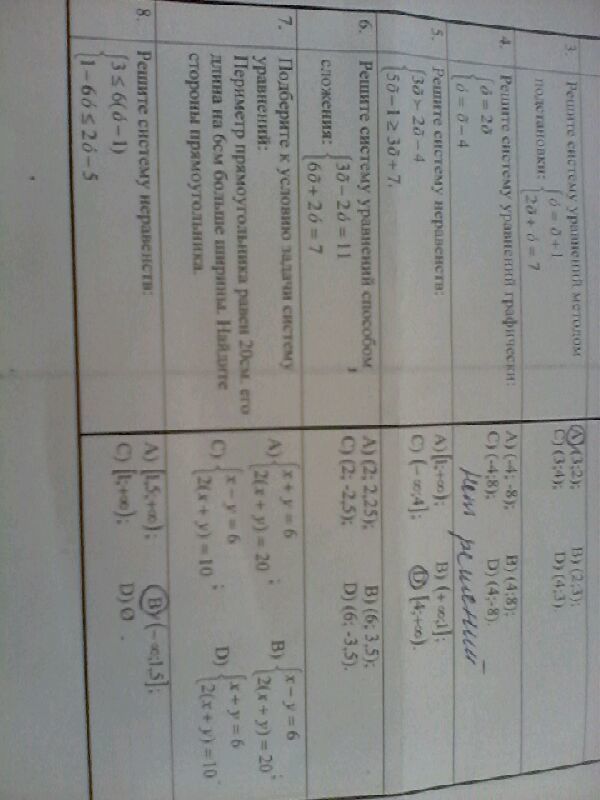 3. Решите систему уравнений методом
подстановки: { о́ = о̄ + 1
2о̄ + о́ = 7
A) (3;2); B) (2;3);
C) (3;4); D) (4;3).
4. Решите систему уравнений графически:
{ о́ = 2о̄
о́ = о̄ − 4
A) (-4; -8); B) (4;8);
C) (-4;8); D) (4;-8).
нет решений
5. Решите систему неравенств:
{ 3о̄ > 2о̄ − 4
5о̄ − 1 ≥ 3о̄ + 7.
A) [1;+∞); B) (+∞;1];
C) (−∞;4]; D) [4;+∞).
6. Решите систему уравнений способом
сложения: { 3о̄ − 2о́ = 11
6о̄ + 2о́ = 7
A) (2; 2,25); B) (6; 3,5);
C) (2; -2,5); D) (6; -3,5).
7. Подберите к условию задачи систему
уравнений:
Периметр прямоугольника равен 20см. его
длина на 6см больше ширины. Найдите
стороны прямоугольника.
A) { x + y = 6
2(x + y) = 20 ;
B) { x − y = 6
2(x + y) = 20 ;
C) { x − y = 6
2(x + y) = 10 ;
D) { x + y = 6
2(x + y) = 10 .
8. Решите систему неравенств:
{ 3 ≤ 6(о́ − 1)
1 − 6о́ ≤ 2о́ − 5
A) [1,5;+∞); B) (−∞;1,5];
C) [1;+∞); D) 0 .